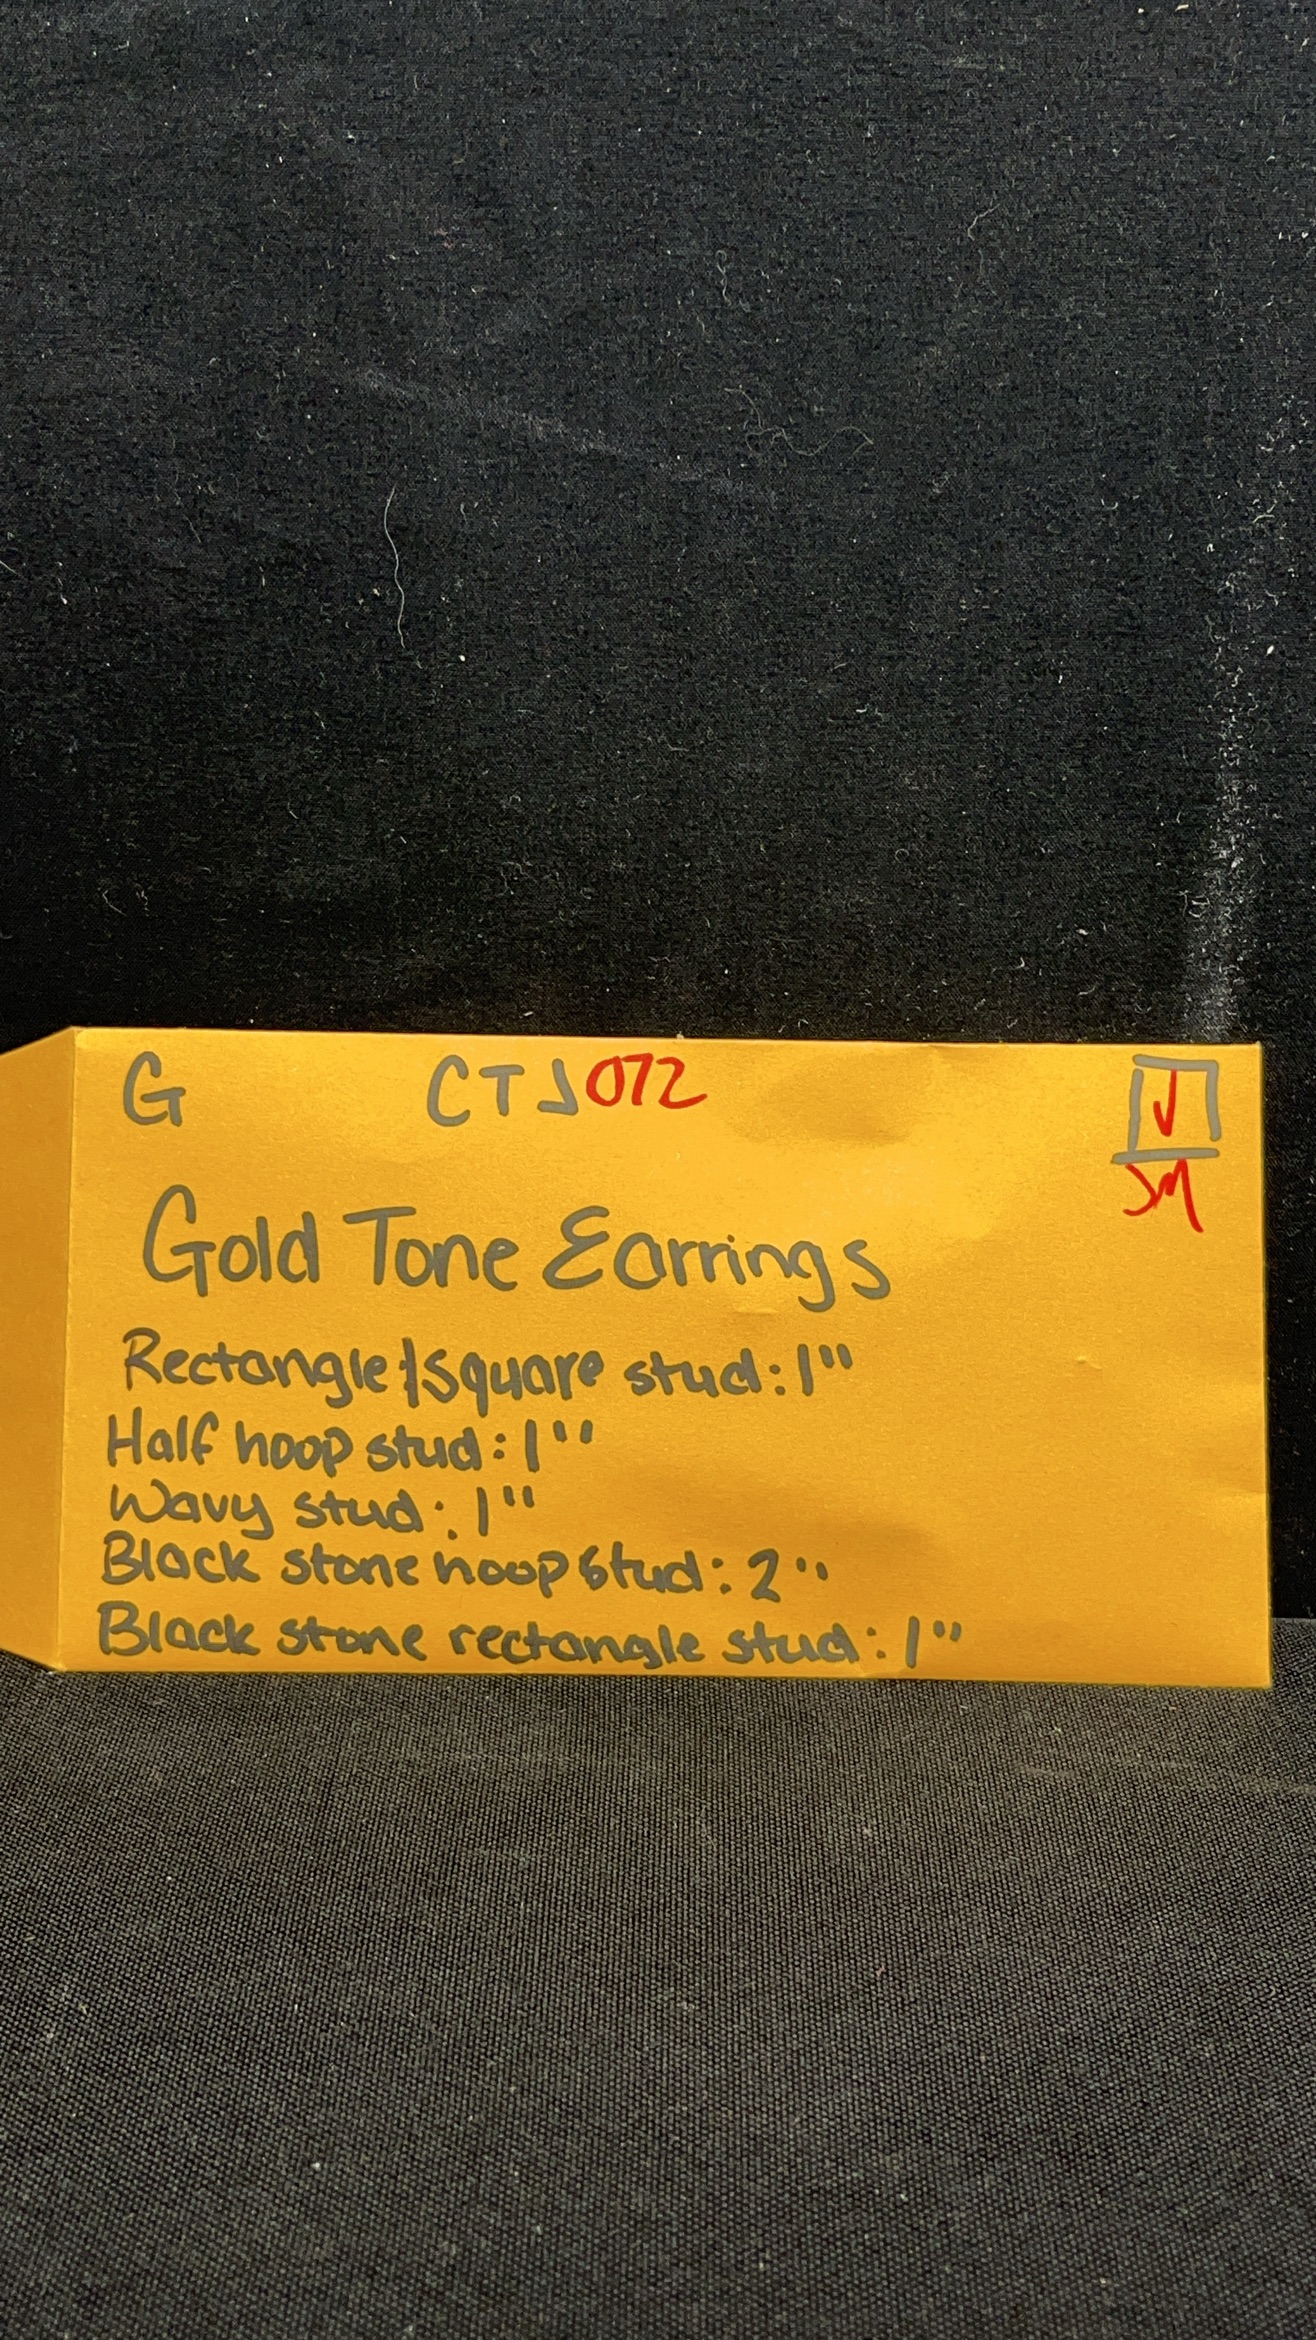 G CTJ072 ✓
JM
Gold Tone Earrings
Rectangle/square stud: 1"
Half hoop stud: 1"
Wavy stud: 1"
Black stone hoop stud: 2"
Black stone rectangle stud: 1"